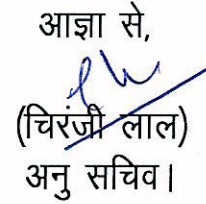 आज्ञा से,
(चिरंजी लाल)
अनु सचिव।